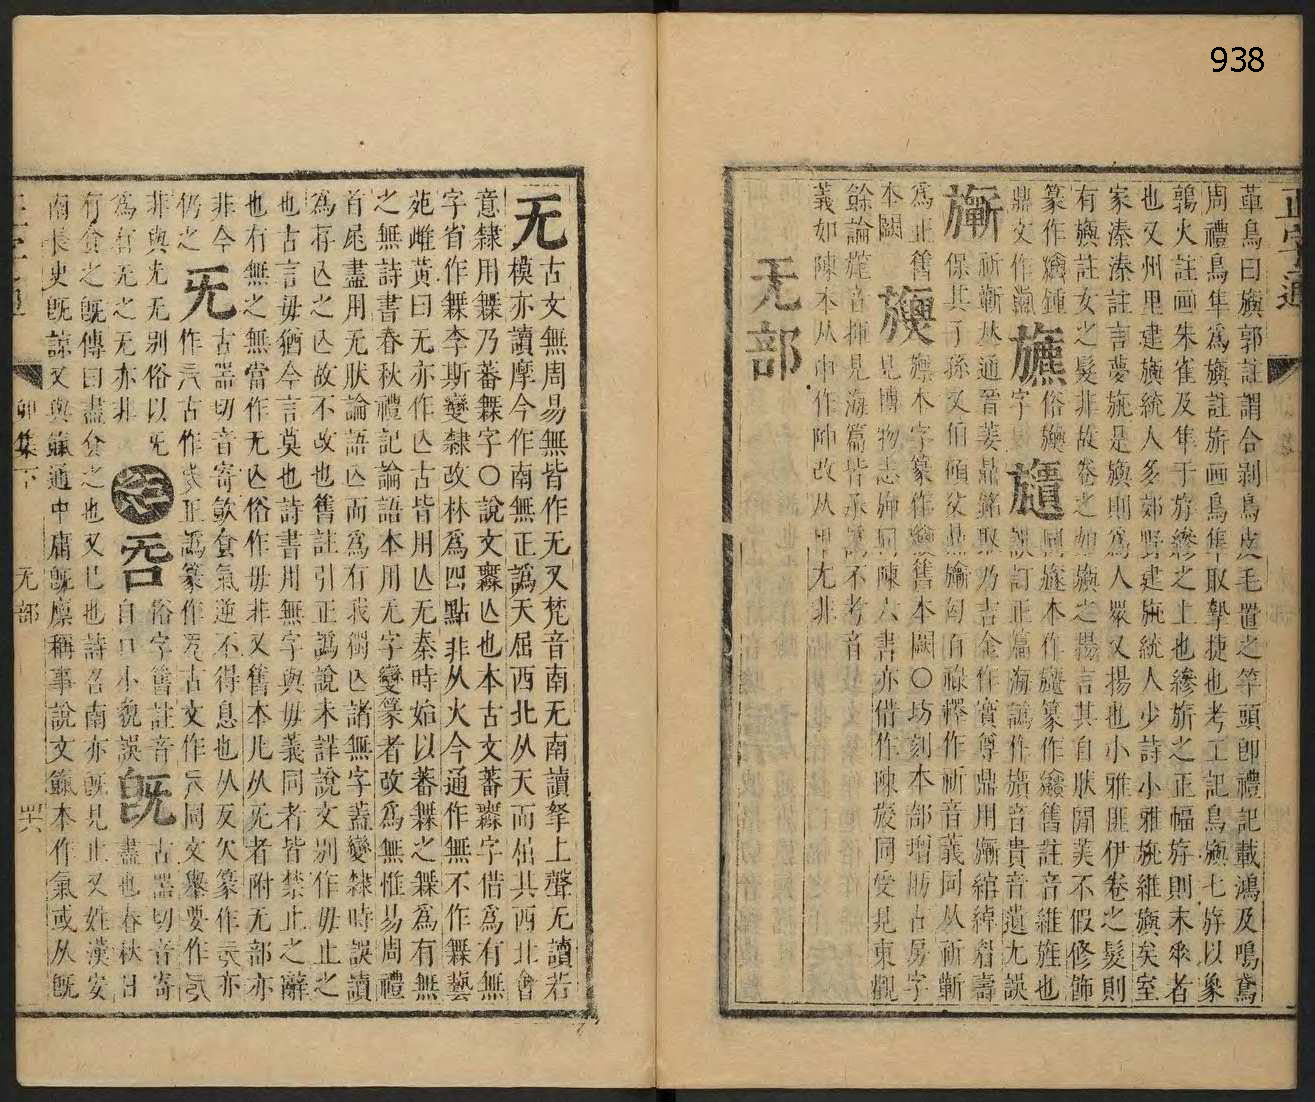 938
正字通
革鳥曰旟郭註謂合剥鳥皮毛置之竿頭即禮記載鴻及鳴鳶
周禮鳥隼爲旟註旂画鳥隼取摯捷也考工記鳥旟七斿以象
鶉火註画朱雀及隼于斿縿之上也縿斿之正幅斿則末垂者
也又州里建旟統人多郊野建旐統人少詩小雅旐維旟矣室
家溱溱註言夢旐是旟則爲人眾又揚也小雅匪伊卷之髮則
有旟註女之髮非故卷之如旟之揚言其自然閒美不假修飾
篆作
鼎文作
旂蘄从通晉姜鼎銘取乃吉金作寶尊鼎用
綰綽眉壽
保其子孫文伯
父鼎
釋作祈音義同从祈蘄
爲正舊本闕〇坊刻本部增
古房字
本闕
見博物志
同陳六書亦借作陳
同受見東觀
餘論
音揮見海篇皆承譌不考音
義如陳本从申作陣改从
尤非
无部
无
古文無周易無皆作无又梵音南无南讀拏上聲无讀若
模亦讀摩今作南無正譌天屈西北从天而屈其西北會
意隸用橆乃蕃橆字〇說文
亾也本古文蕃
字借爲有無
字省作橆李斯變隸改林爲四點非从火今通作無不作橆藝
苑雌黄曰无亦作亾古皆用亾无秦時始以蕃橆之橆爲有無
之無詩書春秋禮記論語本用无字變篆者改爲無惟易周禮
首尾盡用无狀論語亾而爲有我獨亾諸無字蓋變隸時誤讀
爲存亾之亾故不改也舊註引正譌說未詳說文别作毋止之
也古言毋猶今言莫也詩書用無字與毋義同者皆禁止之辭
也有無之無當作无亾俗作毋非又舊本凡从旡者附无部亦
非今
仍之
旡
古器切音寄飲食氣逆不得息也从反欠篆作
亦
作
古作
正譌篆作
古文作
同文舉要作
非與无无别俗以旡
爲有无之无亦非
㤅
㖠
俗字舊註音
自口小貌誤
旣
古器切音寄
盡也春秋日
有食之旣傳曰盡食之也又已也詩召南亦旣見止又姓漢安
南長史旣諒又與
通中庸旣廩稱事說文
本作氣或从旣
正字通
卯集下
无部